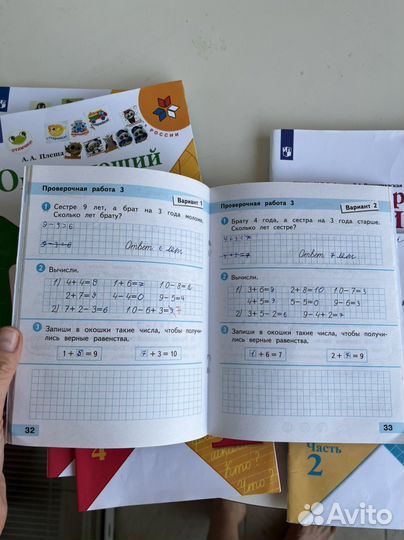 А. А. Плеша
РОССИИ
Проверочная работа 3
Вариант 1
1 Сестре 9 лет, а брат на 3 года моложе.
Сколько лет брату?
9-3=6
Ответ 6 лет
2 Вычисли.
1) 4+4=8 1+6=7 10-8=2
2+7=9 4-4=0 9-5=4
2) 7+2-3=6 10-6+3=7
3 Запиши в окошки такие числа, чтобы получи-
лись верные равенства.
1 + 8 = 9 7 + 3 = 10
32
Проверочная работа 3
Вариант 2
1 Брату 4 года, а сестра на 3 года старше.
Сколько лет сестре?
4+3=7
Ответ 7 лет
2 Вычисли.
1) 3+6=9 2+8=10 10-7=3
4+5=9 5-5=0 9-6=3
2) 3+5-2=6 9-4+2=7
3 Запиши в окошки такие числа, чтобы получи-
лись верные равенства.
1 + 6 = 7 2 + 7 = 9
33
4
Кто?
Что?
Часть
2
Avito